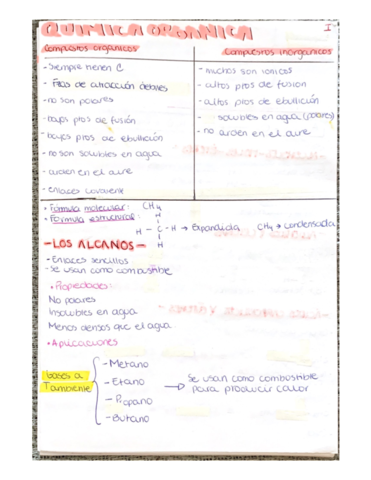 QUIMICA ORGANICA
I
Compuestos organicos
Compuestos inorganicos
- Siempre tienen C
- Ptos de atracción debiles
- no son polares
- bajos ptos de fusión
- bajos ptos de ebullición
- no son solubles en agua
- arden en el aire
- enlaces covalente
- muchos son ionicos
- altos ptos de fusion
- altos ptos de ebullición
- solubles en agua (polares)
- no arden en el aire
• Formula molecular: CH4
• Formula estructural:
H
H - C - H → Expandida
H
CH4 → condensada
- LOS ALCANOS -
- Enlaces sencillos
- se usan como combustible
• Propiedades:
No polares
Insolubles en agua
Menos densos que el agua
• Aplicaciones
Gases a
T ambiente
- Metano
- Etano
- Propano
- Butano
→ Se usan como combustible
para producir calor